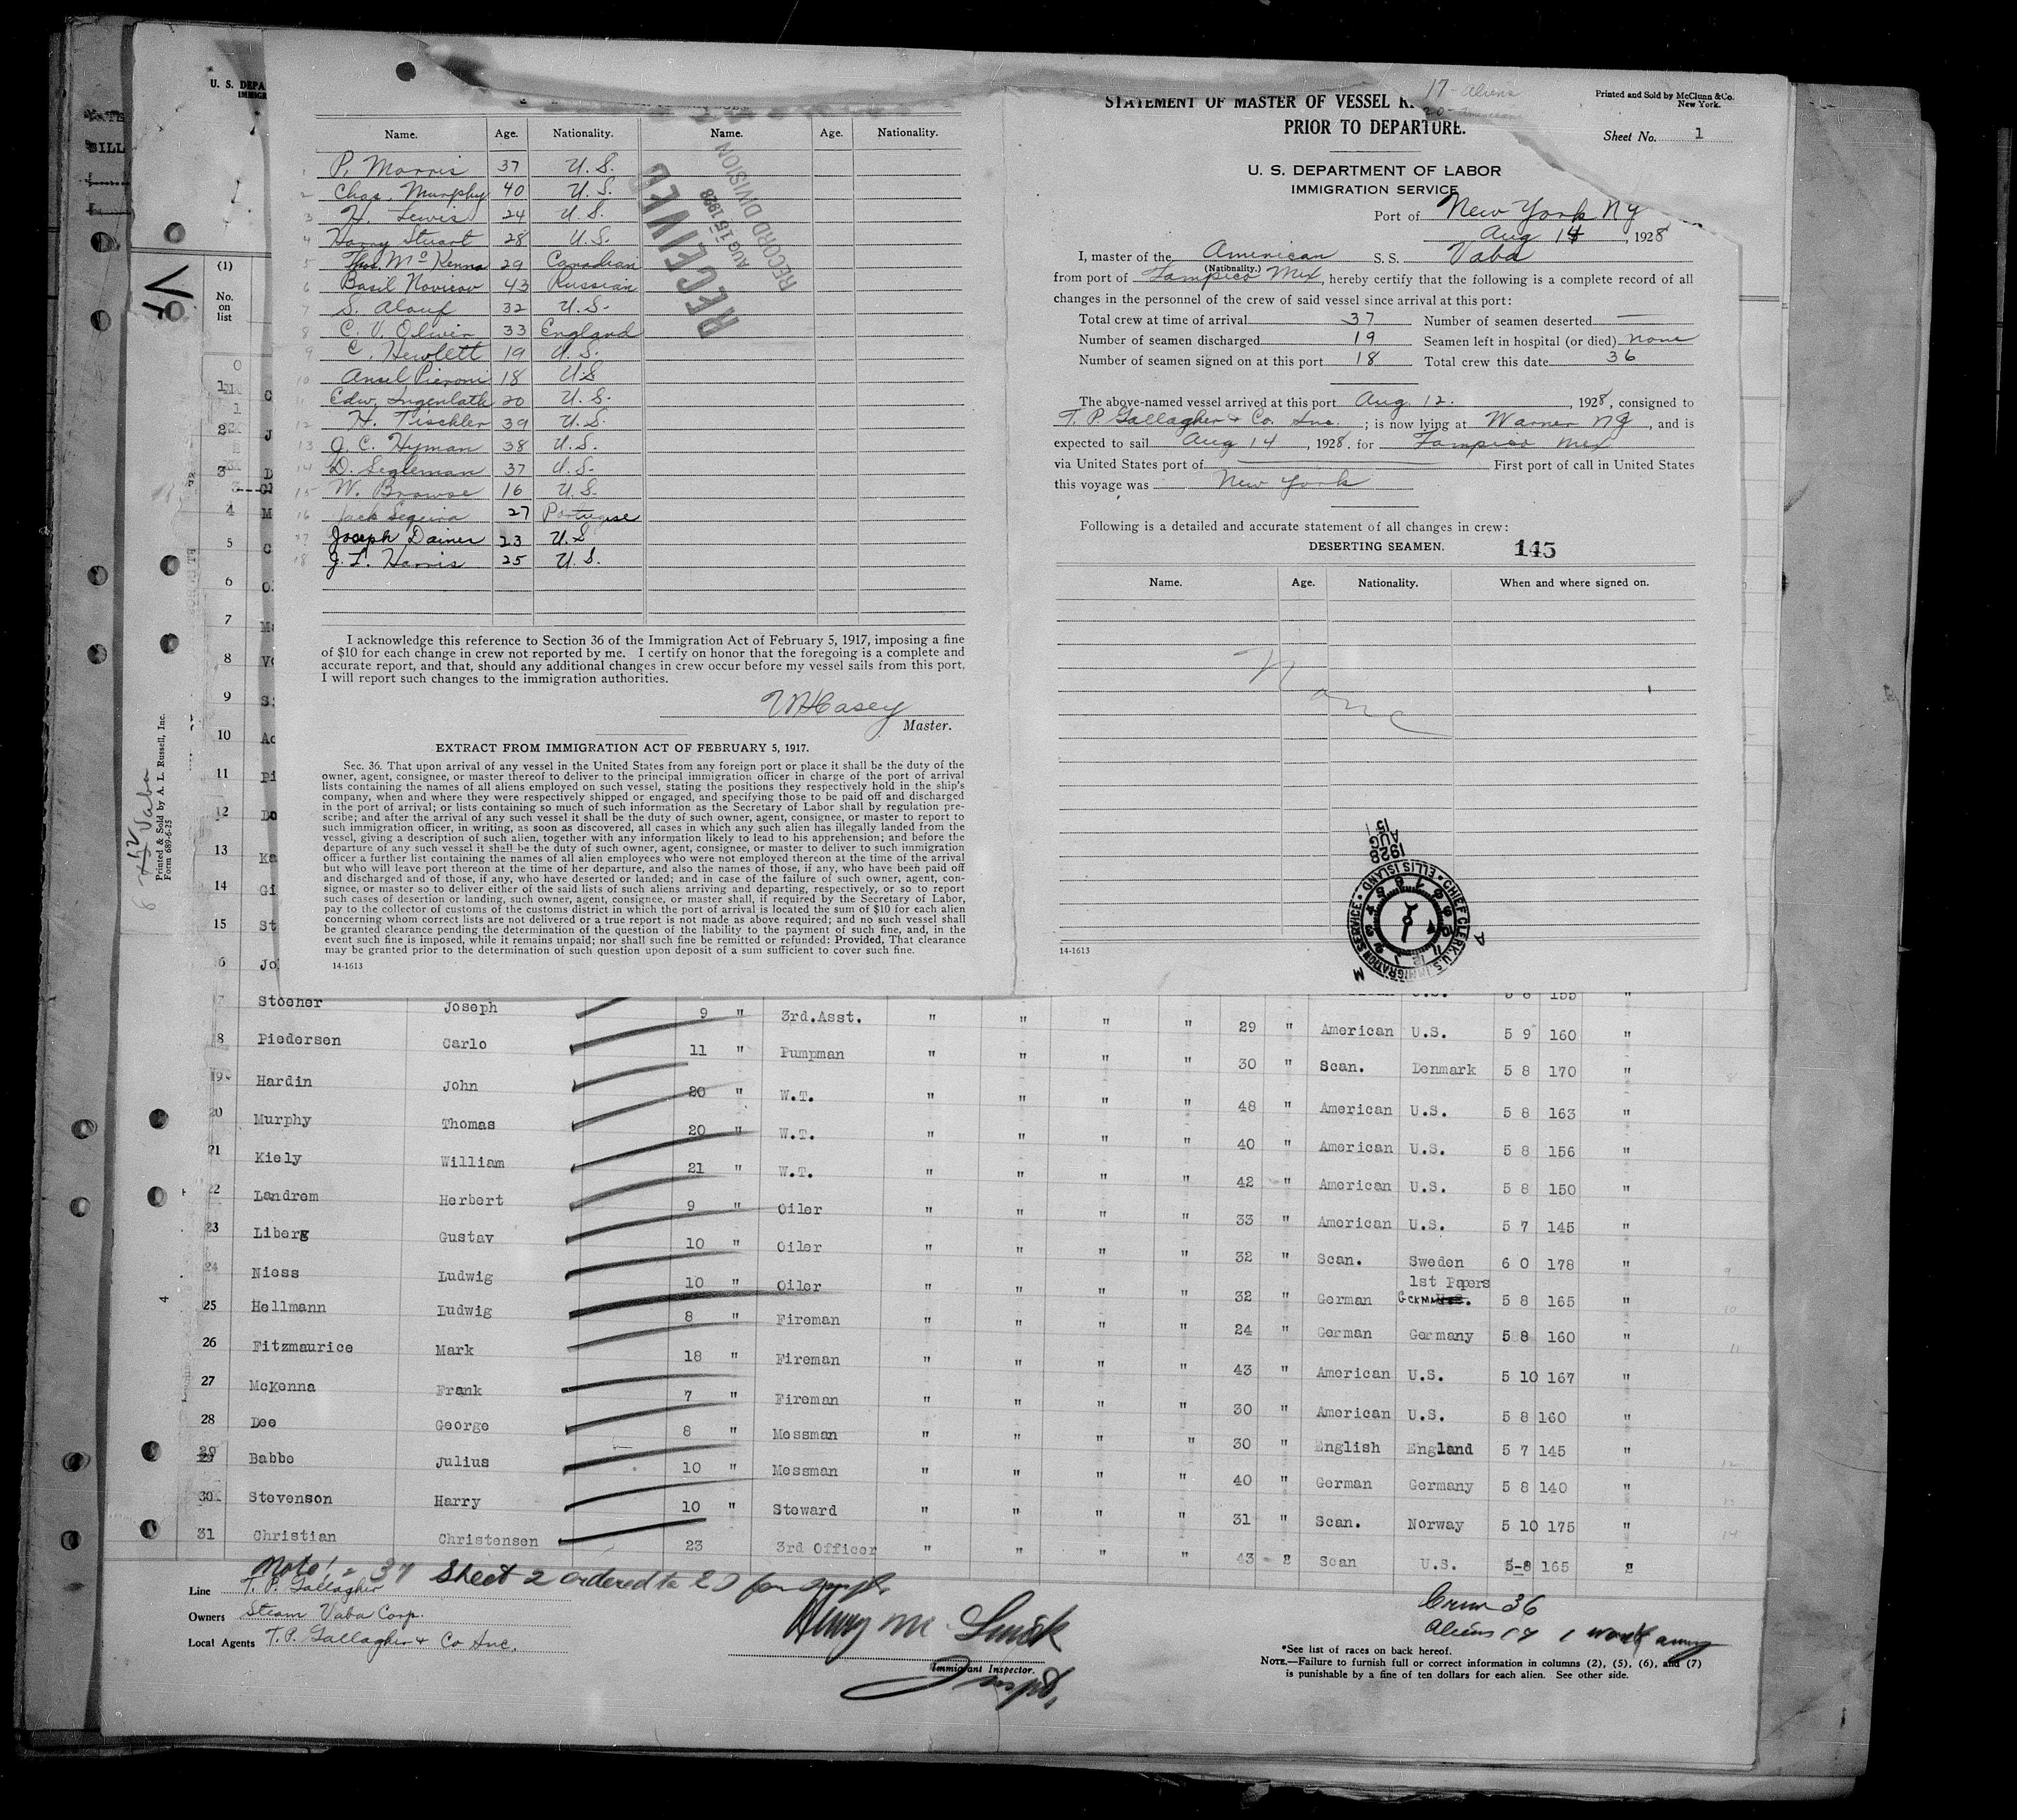 U. S. DEPA
IMMIGR
(1)
No.
on
list
Name. Age. Nationality. Name. Age. Nationality.
1 P. Morris 37 U. S.
2 Chas. Murphy 40 U. S.
3 H. Lewis 24 U. S.
4 Harry Stuart 28 U. S.
5 Thos. McKenna 29 Canadian
6 Basil Novicov 43 Russian
7 S. Alouf 32 U. S.
8 C. V. Oliver 33 England
9 C. Hewlett 19 U. S.
10 Ansel Pieroni 18 U.S
11 Edw. Ingenlath 20 U. S.
12 H. Tischler 39 U. S.
13 J. C. Hyman 38 U. S.
14 D. Segleman 37 U. S.
15 W. Browse 16 U. S.
16 Jack Sequira 27 Portugese
17 Joseph Dainer 23 U. S
18 J. L. Harris 25 U. S.
RECEIVED
AUG 15 1928
RECORD DIVISION
I acknowledge this reference to Section 36 of the Immigration Act of February 5, 1917, imposing a fine
of $10 for each change in crew not reported by me. I certify on honor that the foregoing is a complete and
accurate report, and that, should any additional changes in crew occur before my vessel sails from this port,
I will report such changes to the immigration authorities.
WHCasey
Master.
EXTRACT FROM IMMIGRATION ACT OF FEBRUARY 5, 1917.
Sec. 36. That upon arrival of any vessel in the United States from any foreign port or place it shall be the duty of the
owner, agent, consignee, or master thereof to deliver to the principal immigration officer in charge of the port of arrival
lists containing the names of all aliens employed on such vessel, stating the positions they respectively hold in the ship's
company, when and where they were respectively shipped or engaged, and specifying those to be paid off and discharged
in the port of arrival; or lists containing so much of such information as the Secretary of Labor shall by regulation pre-
scribe; and after the arrival of any such vessel it shall be the duty of such owner, agent, consignee, or master to report to
such immigration officer, in writing, as soon as discovered, all cases in which any such alien has illegally landed from the
vessel, giving a description of such alien, together with any information likely to lead to his apprehension; and before the
departure of any such vessel it shall be the duty of such owner, agent, consignee, or master to deliver to such immigration
officer a further list containing the names of all alien employees who were not employed thereon at the time of the arrival
but who will leave port thereon at the time of her departure, and also the names of those, if any, who have been paid off
and discharged and of those, if any, who have deserted or landed; and in case of the failure of such owner, agent, con-
signee, or master so to deliver either of the said lists of such aliens arriving and departing, respectively, or so to report
such cases of desertion or landing, such owner, agent, consignee, or master shall, if required by the Secretary of Labor,
pay to the collector of customs of the customs district in which the port of arrival is located the sum of $10 for each alien
concerning whom correct lists are not delivered or a true report is not made as above required; and no such vessel shall
be granted clearance pending the determination of the question of the liability to the payment of such fine, and, in the
event such fine is imposed, while it remains unpaid; nor shall such fine be remitted or refunded: Provided, That clearance
may be granted prior to the determination of such question upon deposit of a sum sufficient to cover such fine.
14-1613
17 - Aliens
20 - Americans
STATEMENT OF MASTER OF VESSEL R
PRIOR TO DEPARTURE.
Printed and Sold by McClunn & Co.
New York.
Sheet No. 1
U. S. DEPARTMENT OF LABOR
IMMIGRATION SERVICE
Port of New York NY
Aug 14, 1928
I, master of the American S. S. Vaba
(Nationality.)
from port of Tampico Mex, hereby certify that the following is a complete record of all
changes in the personnel of the crew of said vessel since arrival at this port:
Total crew at time of arrival 37 Number of seamen deserted —
Number of seamen discharged 19 Seamen left in hospital (or died) none
Number of seamen signed on at this port 18 Total crew this date 36
The above-named vessel arrived at this port Aug. 12., 1928, consigned to
T. P. Gallagher & Co. Inc.; is now lying at Warner NJ, and is
expected to sail Aug 14, 1928. for Tampico Mex
via United States port of — First port of call in United States
this voyage was New York
Following is a detailed and accurate statement of all changes in crew:
DESERTING SEAMEN. 145
Name. Age. Nationality. When and where signed on.
None
1928
AUG
15
CHIEF CLERK, U.S. IMMIGRATION SERVICE • ELLIS ISLAND
14-1613
Vaba
Printed & Sold by A. L. Russell, Inc.
Form 689-6-25
Stoener Joseph 9 " 3rd.Asst. " " " " 29 " American U.S. 5 9 160 "
18 Piedersen Carlo 11 " Pumpman " " " " 30 " Scan. Denmark 5 8 170 "
19 Hardin John 20 " W.T. " " " " 48 " American U.S. 5 8 163 "
20 Murphy Thomas 20 " W.T. " " " " 40 " American U.S. 5 8 156 "
21 Kiely William 21 " W.T. " " " " 42 " American U.S. 5 8 150 "
22 Landrem Herbert 9 " Oiler " " " " 33 " American U.S. 5 7 145 "
23 Liberg Gustav 10 " Oiler " " " " 32 " Scan. Sweden 6 0 178 "
1st Papers
24 Niess Ludwig 10 " Oiler " " " " 32 " German German 5 8 165 "
25 Hellmann Ludwig 8 " Fireman " " " " 24 " German Germany 5 8 160 "
26 Fitzmaurice Mark 18 " Fireman " " " " 43 " American U.S. 5 10 167 "
27 McKenna Frank 7 " Fireman " " " " 30 " American U.S. 5 8 160 "
28 Dee George 8 " Messman " " " " 30 " English England 5 7 145 "
29 Babbe Julius 10 " Messman " " " " 40 " German Germany 5 8 140 "
30 Stevenson Harry 10 " Steward " " " " 31 " Scan. Norway 5 10 175 "
31 Christian Christensen 23 3rd Officer " " " " 43 " Scan U.S. 5-8 165 "
Note! 37 Sheet 2 ordered to
Line T. P. Gallagher
Owners Steam Vaba Corp.
Local Agents T. P. Gallagher & Co Inc.
Immigrant Inspector.
Crew 36
Aliens 17
*See list of races on back hereof.
NOTE.—Failure to furnish full or correct information in columns (2), (5), (6), and (7)
is punishable by a fine of ten dollars for each alien. See other side.